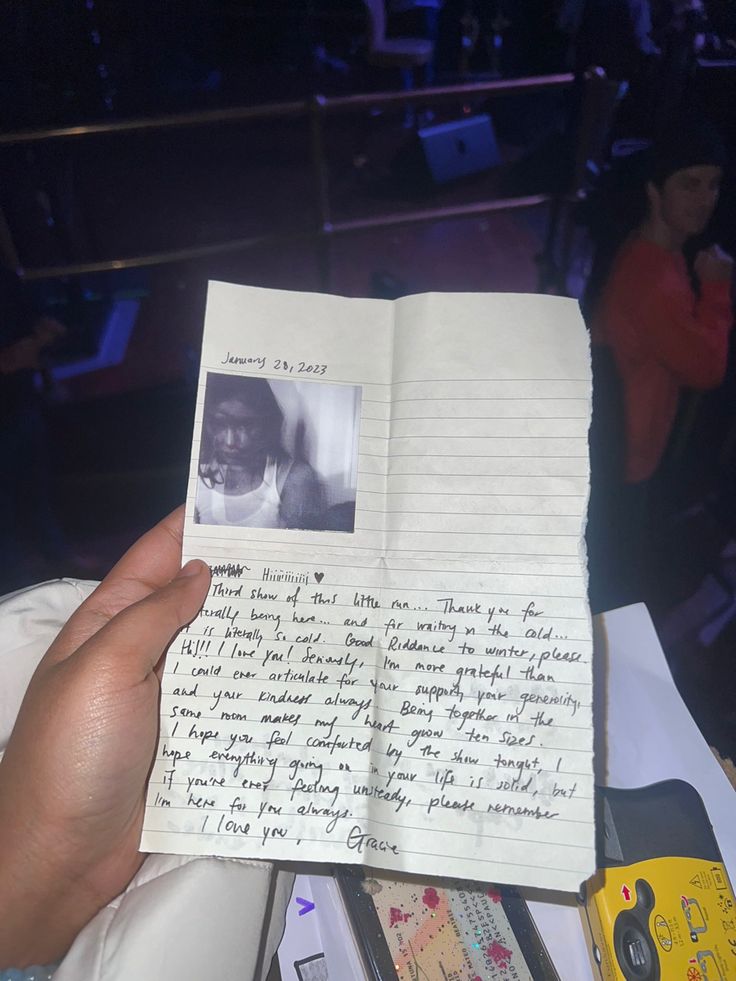 January 28, 2023
Hiiiiiiiii ♥
Third show of this little run... Thank you for
literally being here... and for waiting in the cold...
it is literally so cold. Good Riddance to winter, please.
Hi!!! I love you! Seriously, I'm more grateful than
I could ever articulate for your support, your generosity,
and your kindness always. Being together in the
same room makes my heart grow ten sizes.
I hope you feel comforted by the show tonight, I
hope everything going on in your life is solid, but
if you're ever feeling unsteady, please remember
I'm here for you always.
I love you,
Gracie